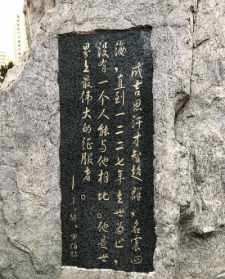 成吉思汗才智超群，名震四
海，直到一二二七年去世为止，
没有一个人能与他相比。他是世
界上最伟大的征服者。